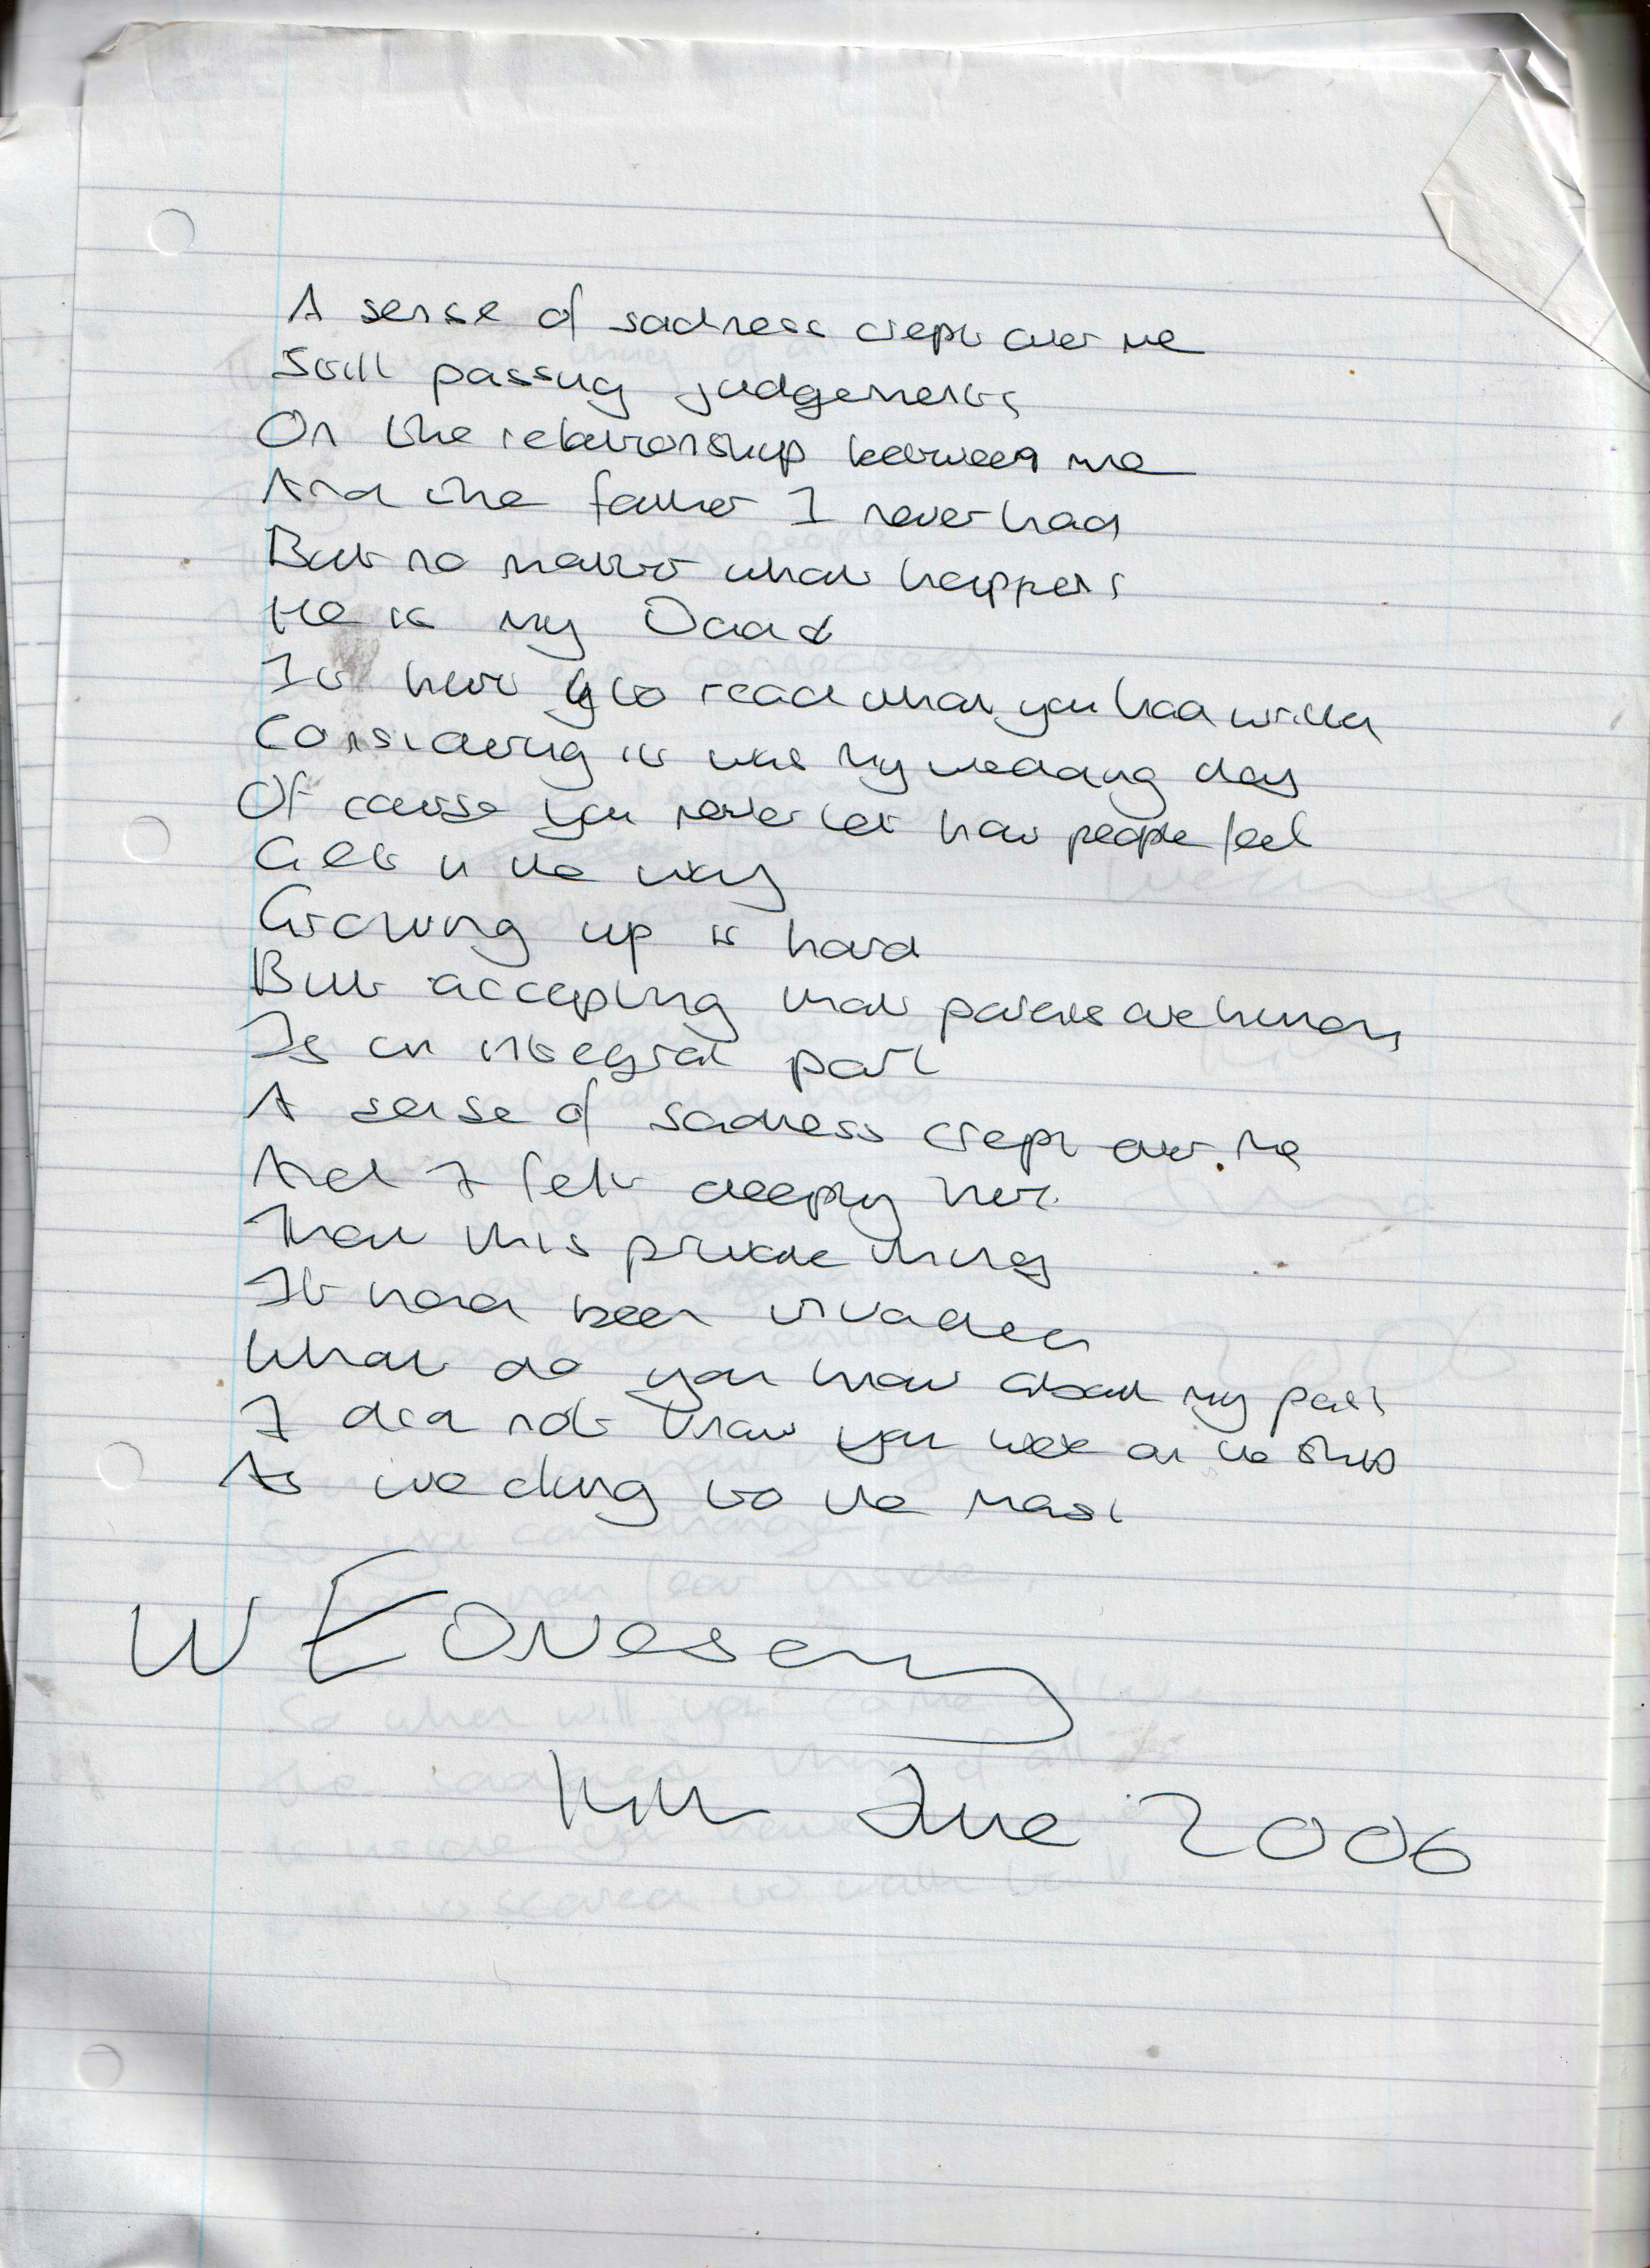 A sense of sadness crept over me
Still passing judgements
On the relationship between me
And the father I never had
But no matter what happens
He is my Dad
It hurt to read what you had written
Considering it was my wedding day
Of cause you never let how people feel
Get in the way
Growing up is hard
But accepting that parents are human
Is an integral part
A sense of sadness crept over me
And I felt deeply hurt
That this private things
It had been invaded
What do you know about my past
I did not know you were on the ship
As we clung to the mast
W E
June 2006